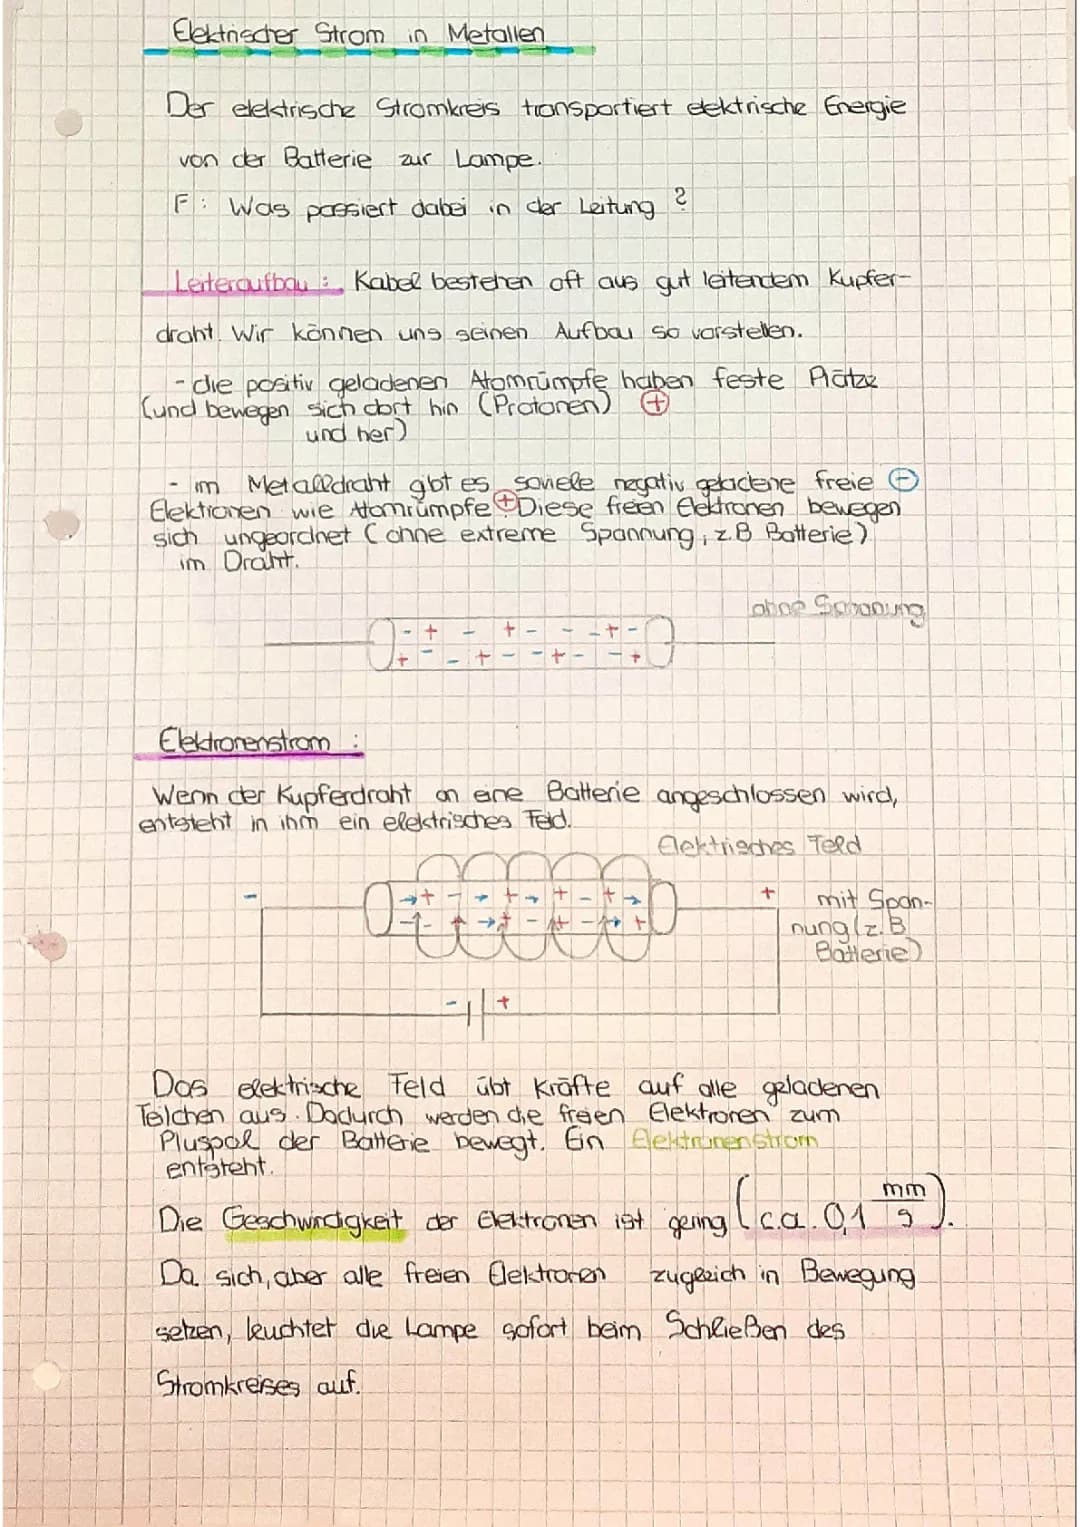 Elektrischer Strom in Metallen
Der elektrische Stromkreis transportiert elektrische Energie
von der Batterie zur Lampe.
F: Was passiert dabei in der Leitung ?
Leiteraufbau : Kabel bestehen oft aus gut leitendem Kupfer-
draht. Wir können uns seinen Aufbau so vorstellen.
- die positiv geladenen Atomrümpfe haben feste Plätze
(und bewegen sich dort hin (Protonen) +
und her)
- im Metalldraht gibt es soviele negativ geladene freie -
Elektronen wie Atomrümpfe + Diese freien Elektronen bewegen
sich ungeordnet (ohne extreme Spannung, z.B Batterie)
im Draht.
ohne Spannung
- + - + - - - + -
+ - - + - - + - - +
Elektronenstrom :
Wenn der Kupferdraht an eine Batterie angeschlossen wird,
entsteht in ihm ein elektrisches Feld.
Elektrisches Feld
- + mit Span-
nung (z.B
Batterie)
- +
Das elektrische Feld übt Kräfte auf alle geladenen
Teilchen aus. Dadurch werden die freien Elektronen zum
Pluspol der Batterie bewegt. Ein Elektronenstrom
entsteht.
Die Geschwindigkeit der Elektronen ist gering (c.a. 0,1 mm/s).
Da sich, aber alle freien Elektronen zugleich in Bewegung
setzen, leuchtet die Lampe sofort beim Schließen des
Stromkreises auf.